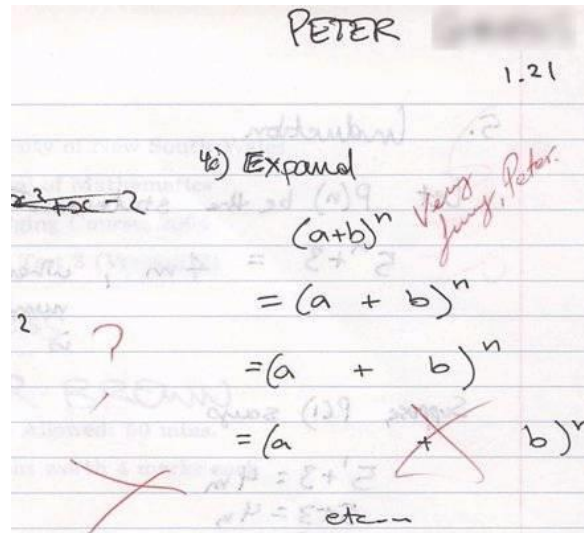 PETER
1.21
4c) Expand
Very
funny, Peter.
(a+b)^n
= (a + b)^n
2
?
=(a + b)^n
= (a + b)^n
etc...